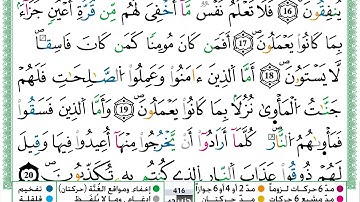 يُنفِقُونَ ١٦ فَلَا تَعْلَمُ نَفْسٌ مَّآ أُخْفِىَ لَهُم مِّن قُرَّةِ أَعْيُنٍ جَزَآءًۢ
بِمَا كَانُوا۟ يَعْمَلُونَ ١٧ أَفَمَن كَانَ مُؤْمِنًا كَمَن كَانَ فَاسِقًا ۚ
لَّا يَسْتَوُۥنَ ١٨ أَمَّا ٱلَّذِينَ ءَامَنُوا۟ وَعَمِلُوا۟ ٱلصَّـٰلِحَـٰتِ فَلَهُمْ
جَنَّـٰتُ ٱلْمَأْوَىٰ نُزُلًۢا بِمَا كَانُوا۟ يَعْمَلُونَ ١٩ وَأَمَّا ٱلَّذِينَ فَسَقُوا۟
فَمَأْوَىٰهُمُ ٱلنَّارُ ۖ كُلَّمَآ أَرَادُوٓا۟ أَن يَخْرُجُوا۟ مِنْهَآ أُعِيدُوا۟ فِيهَا وَقِيلَ
لَهُمْ ذُوقُوا۟ عَذَابَ ٱلنَّارِ ٱلَّذِى كُنتُم بِهِۦ تُكَذِّبُونَ ٢٠
مدّ 6 حركات لزوماً مدّ 2 أو 4 أو 6 جوازاً 416 إخفاء ومواقع الغُنَّة (حركتان) تفخيم
مدّ حركتان إدغام، وما لا يُلفظ قلقلة